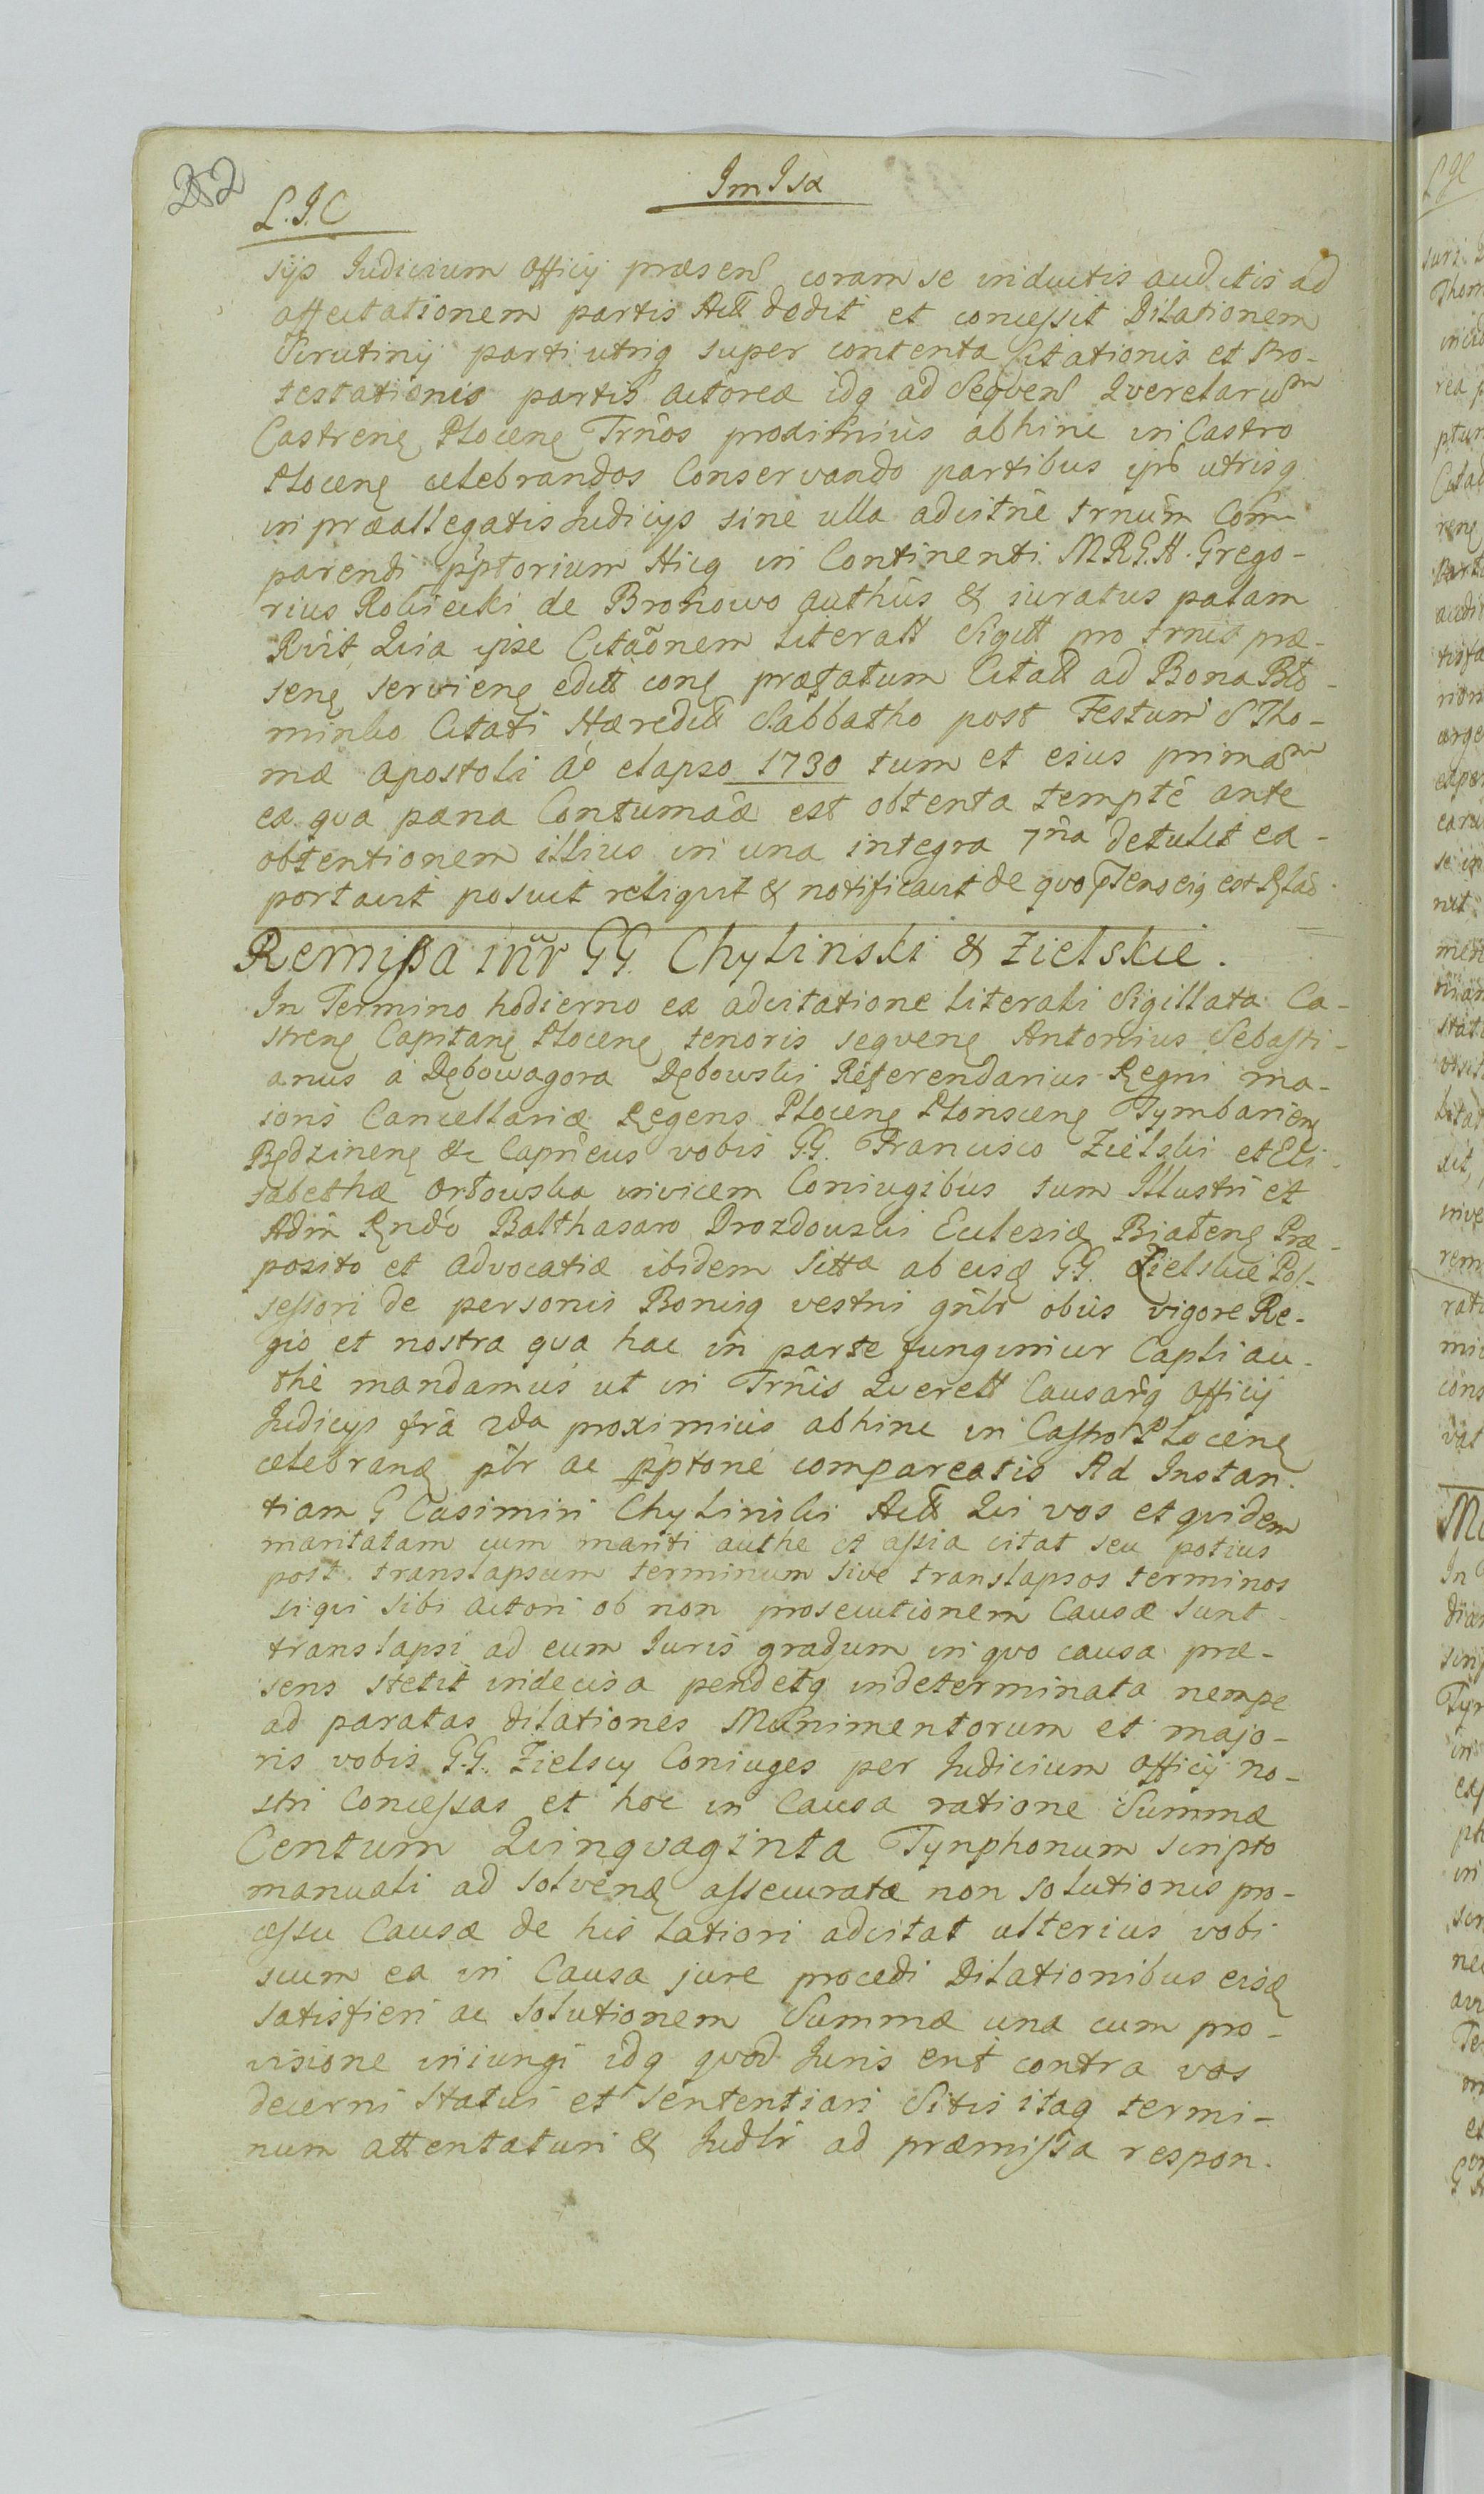 252
Im Isa
L. I. C
sijs Iudicium Officij præsens coram se inductis auditis ad
affectationem partis Act dedit et concessit Dilationem
Scrutinij parti utriq super contenta Citationis et Pro-
testationis partis Actoreæ idq ad seqvens Qverelarum
Castrens Plocens Trños proximius abhinc in Castro
Plocens celebrandos Conservando partibus ips utrisq
in præallegatis Iudicijs sine ulla adcitñe trnũm Com-
parendi pptorium Hicq in Continenti M.R.G.H. Grego-
rius Robiecki de Bronowo authus & iuratus palam
Rvit Quia ipse Citaõnem literall Sigill pro trnis præ-
sens serviens edill cong præfatum Citall ad Bona Blo-
minko Citati Hæredill Sabbatho post Festum S Tho-
mæ Apostoli Ao elapso 1730 tum et eius primam
ex qva pæna Contumaæ est obtenta tempte ante
obtentionem illius in una integra 7na detulit ex-
portavit posuit reliqvit & notificavit de qvo eiq est Rlão.
Remissa iñr GG. Chylinski & Zielskie.
In Termino hodierno ex adcitatione literali Sigillata Ca-
strens Capitans Plocens tenoris seqvens Antonius Sebasti-
anus a Dębowagora Dębowski Referendarius Regni ma-
ioris Cancellariæ Regens Plocens Plonscens Tymbariens
Będzinens &c Capneus vobis G.G. Francisco Zielski et Eli-
sabethæ Orłowska invicem Coniugibus tum Illustri et
Adm Rndo Balthasaro Drozdowski Eclesiæ Białens Præ-
posito et advocatiæ ibidem Sitta ab eisd GG. Zielskie Pos-
sessori de personis Bonisq vestri gnlr obus vigore Re-
gio et nostra qva hac in parte fungimur Capli au-
the mandamus ut in Trñis Qverell Causarq Officij
Iudicijs fra 2da proximius abhinc in Castro Plocens
celebrand plr ac pptone compareatis Ad Instan-
tiam G Casimiri Chylinski Act Qui vos et qvidem
maritatam cum mariti authe et assia citat seu potius
post translapsum terminum sive translapsos terminos
si qui sibi actori ob non prosecutionem Causæ sunt
translapsi ad eum Iuris gradum in qvo causa præ-
sens stetit indecisa pendetq indeterminata nempe
ad paratas dilationes Munimentorum et majo-
ris vobis G.G. Zielscy Coniuges per Iudicium Officij no-
stri Concessas et hoc in Causa ratione Summæ
Centum Qvinqvaginta Tynphonum scripto
manuali ad solvend assecuratæ non solutionis pro-
cessu Causæ de his latiori adcitat ulterius vobi
scum ea in Causa jure procedi Dilationibus eisd
satisfieri ac solutionem Summæ una cum pro-
visione iniungi idq qvod Iuris erit contra vos
decerni statui et sententiari Sitis itaq termi-
num attentaturi & Iudlr ad præmissa respon-